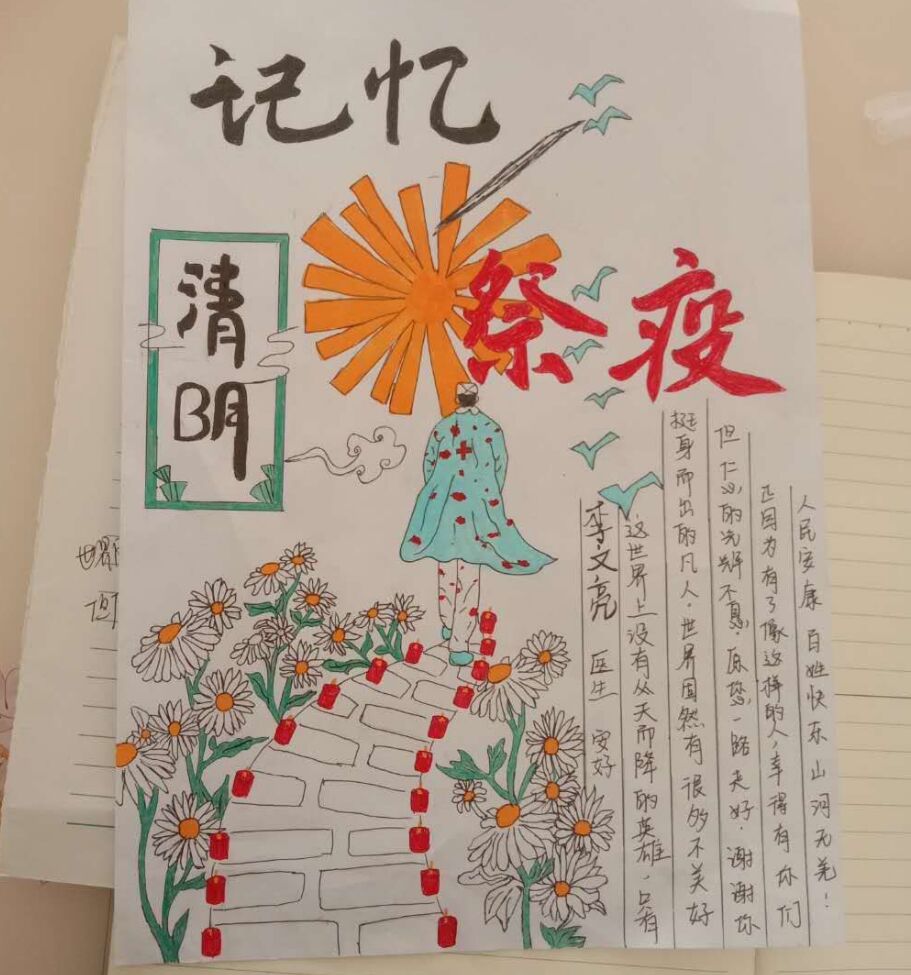 记忆
清
明
祭疫
李文亮 医生 安好
这世界上没有从天而降的英雄，只有
挺身而出的凡人。世界固然有很多不美好
但仁心的光辉不息。愿您一路走好。谢谢你
正因为有了像这样的人，幸得有你们
人民安康 百姓快乐 山河无恙！